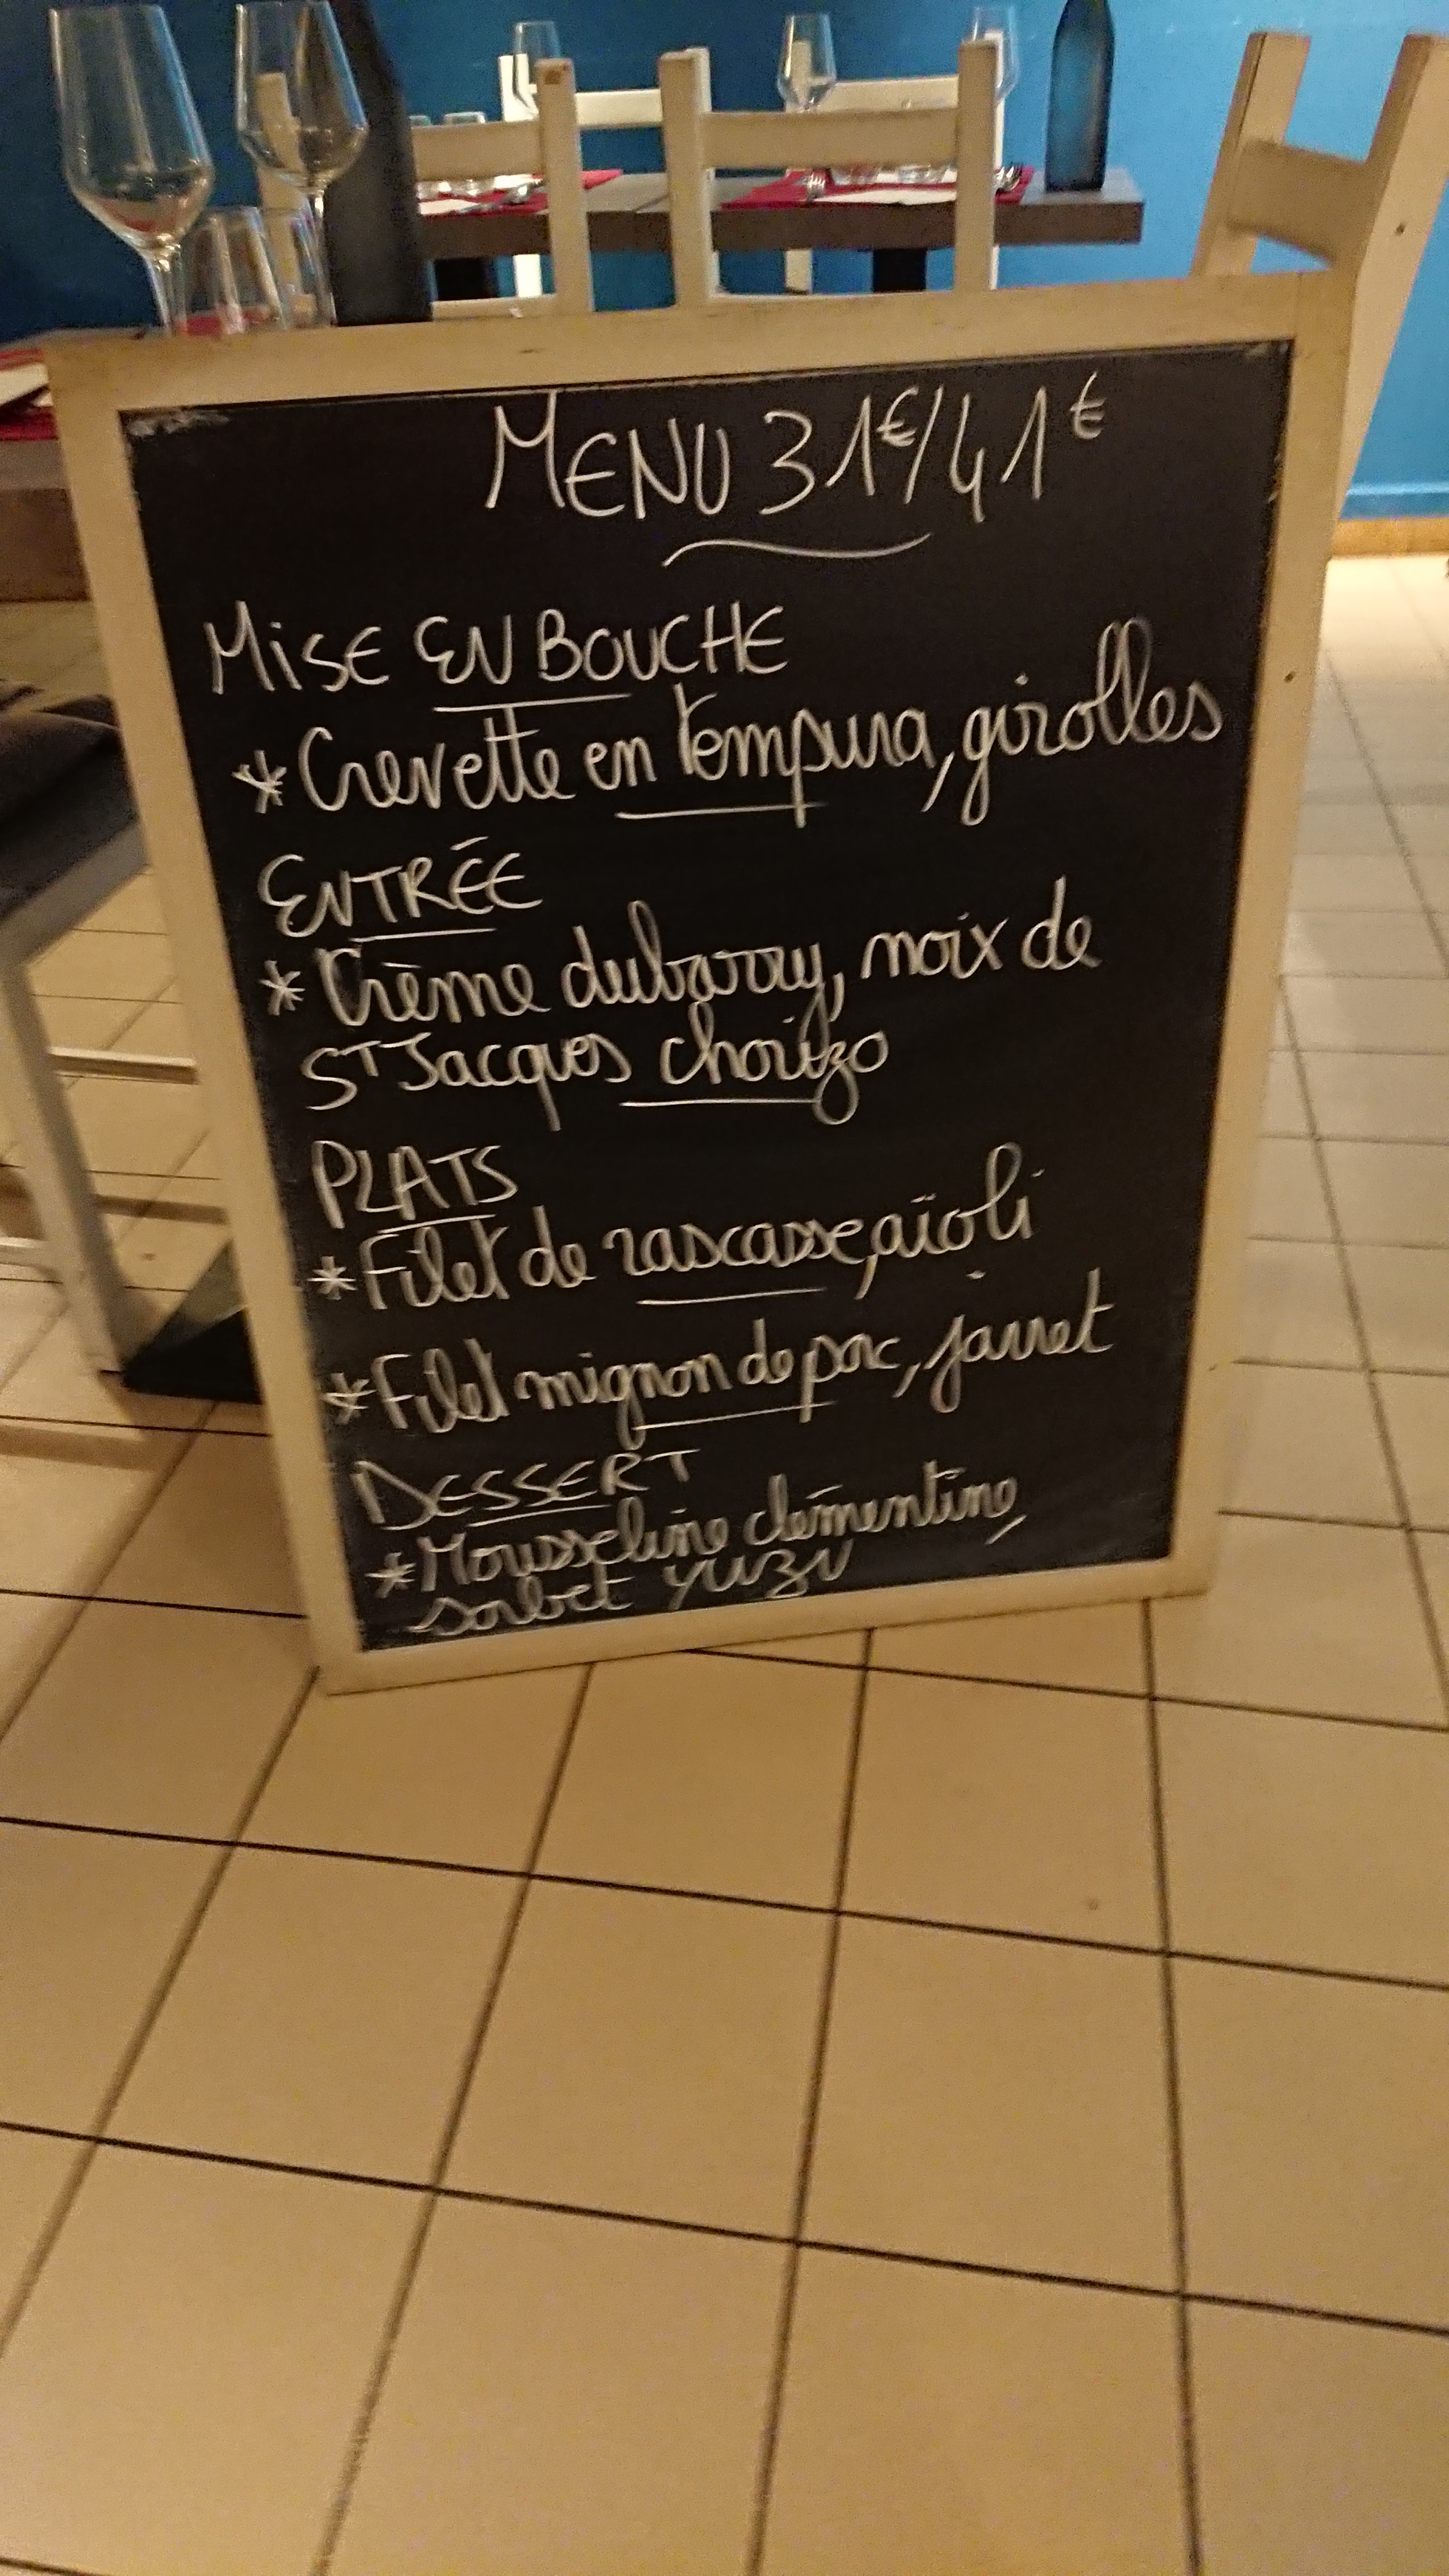 MENU 31€/41€
MiSE EN BOUCHE
* Crevette en tempura, girolles
ENTRÉE
* Crème dubarry, noix de
ST Jacques chorizo
PLATS
* Filet de rascasse, aïoli
* Filet mignon de porc, jarret
DESSERT
* Mousseline clémentine,
sorbet YUZU